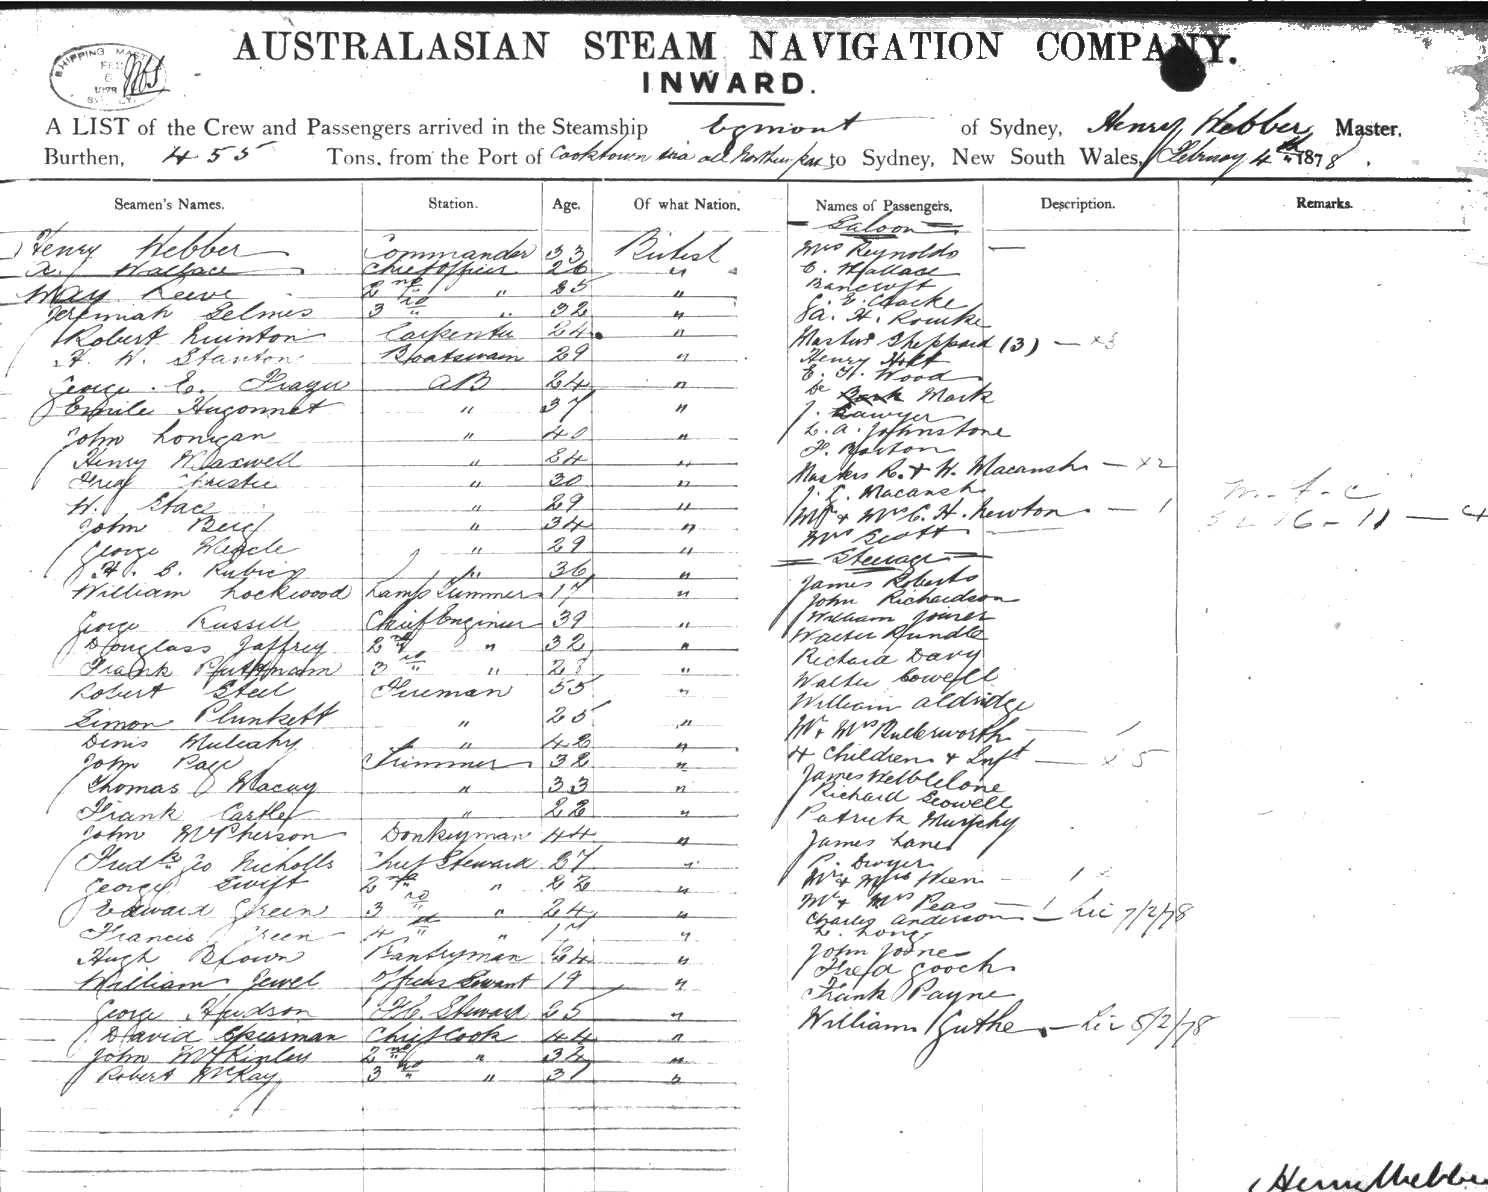 SHIPPING MAST
FEB
6
1878
SYDNEY
AUSTRALASIAN STEAM NAVIGATION COMPANY.
INWARD.
A LIST of the Crew and Passengers arrived in the Steamship Egmont of Sydney, Henry Webber Master,
Burthen, 455 Tons, from the Port of Cooktown via all Northern to Sydney, New South Wales, February 4th 1878.
Seamen's Names. Station. Age. Of what Nation. Names of Passengers. Description. Remarks.
Henry Webber Commander 33 British
A. Wallace Chief Officer 26 "
Reeve 2nd " "
Jeremiah Selmes 3rd " 32 "
Robert Quinton Carpenter 24 "
H. W. Stanton Boatswain 29 "
George E. Frazer AB 24 "
Emile Hugonnet " 37 "
John Lonigan " 40 "
Henry Maxwell " "
Christie " 30 "
W. Stace " 29 "
John Berg " 34 "
George " 29 "
H. C. " 36 "
William Lockwood Lamp Trimmer 17 "
George Russell Chief Engineer 39 "
Douglass Jaffrey 2nd " 32 "
Frank 3rd " "
Robert Steel Fireman 55 "
Simon Plunkett " 25 "
Denis Mulcahy " 42 "
John Page Trimmer 32 "
Thomas Macay " 33 "
Frank Castle " 22 "
John McPherson Donkeyman 44 "
Fredk Geo Nicholls Chief Steward 27 "
George Swift 2nd " 22 "
Edward Green 3rd " 24 "
Francis Green 4th " 17 "
Hugh Brown Pantryman "
William Jewel Officers Servant 19 "
George Hudson Steward 25 "
David Spearman Chief Cook 44 "
John McKinley 2nd " 34 "
Robert McKay 3rd " 37 "
Saloon
Mrs Reynolds —
C. Wallace
Bancroft
C. E. Clarke
A. H. Rourke
Masters Sheppard (3) — x3
Henry Holt
E. H. Wood
Dr Mark
J. Sawyer
L. A. Johnstone
F. Norton
Masters R. & W. Macansh — x2
J. E. Macansh
Mr & Mrs C. H. Newton — 1
Mrs Scott —
Steerage
James Roberts
John Richardson
William Joiner
Walter Rundle
Richard Davy
Walter Cowell
William Aldridge
Mr & Mrs Butterworth — 1
4 Children & Inft — x 5
James
Richard Scowell
Patrick Murphy
James Lane
P. Dwyer
Mr & Mrs Wien — 1
Mr & Mrs Peas — 1 Lic 7/2/78
Charles Anderson
L. Long
John Joones
Fred Gooch
Frank Payne
William Guthe — Lic 5/2/78
m - f - c
52 - 16 - 11 — 4
Henry Webber